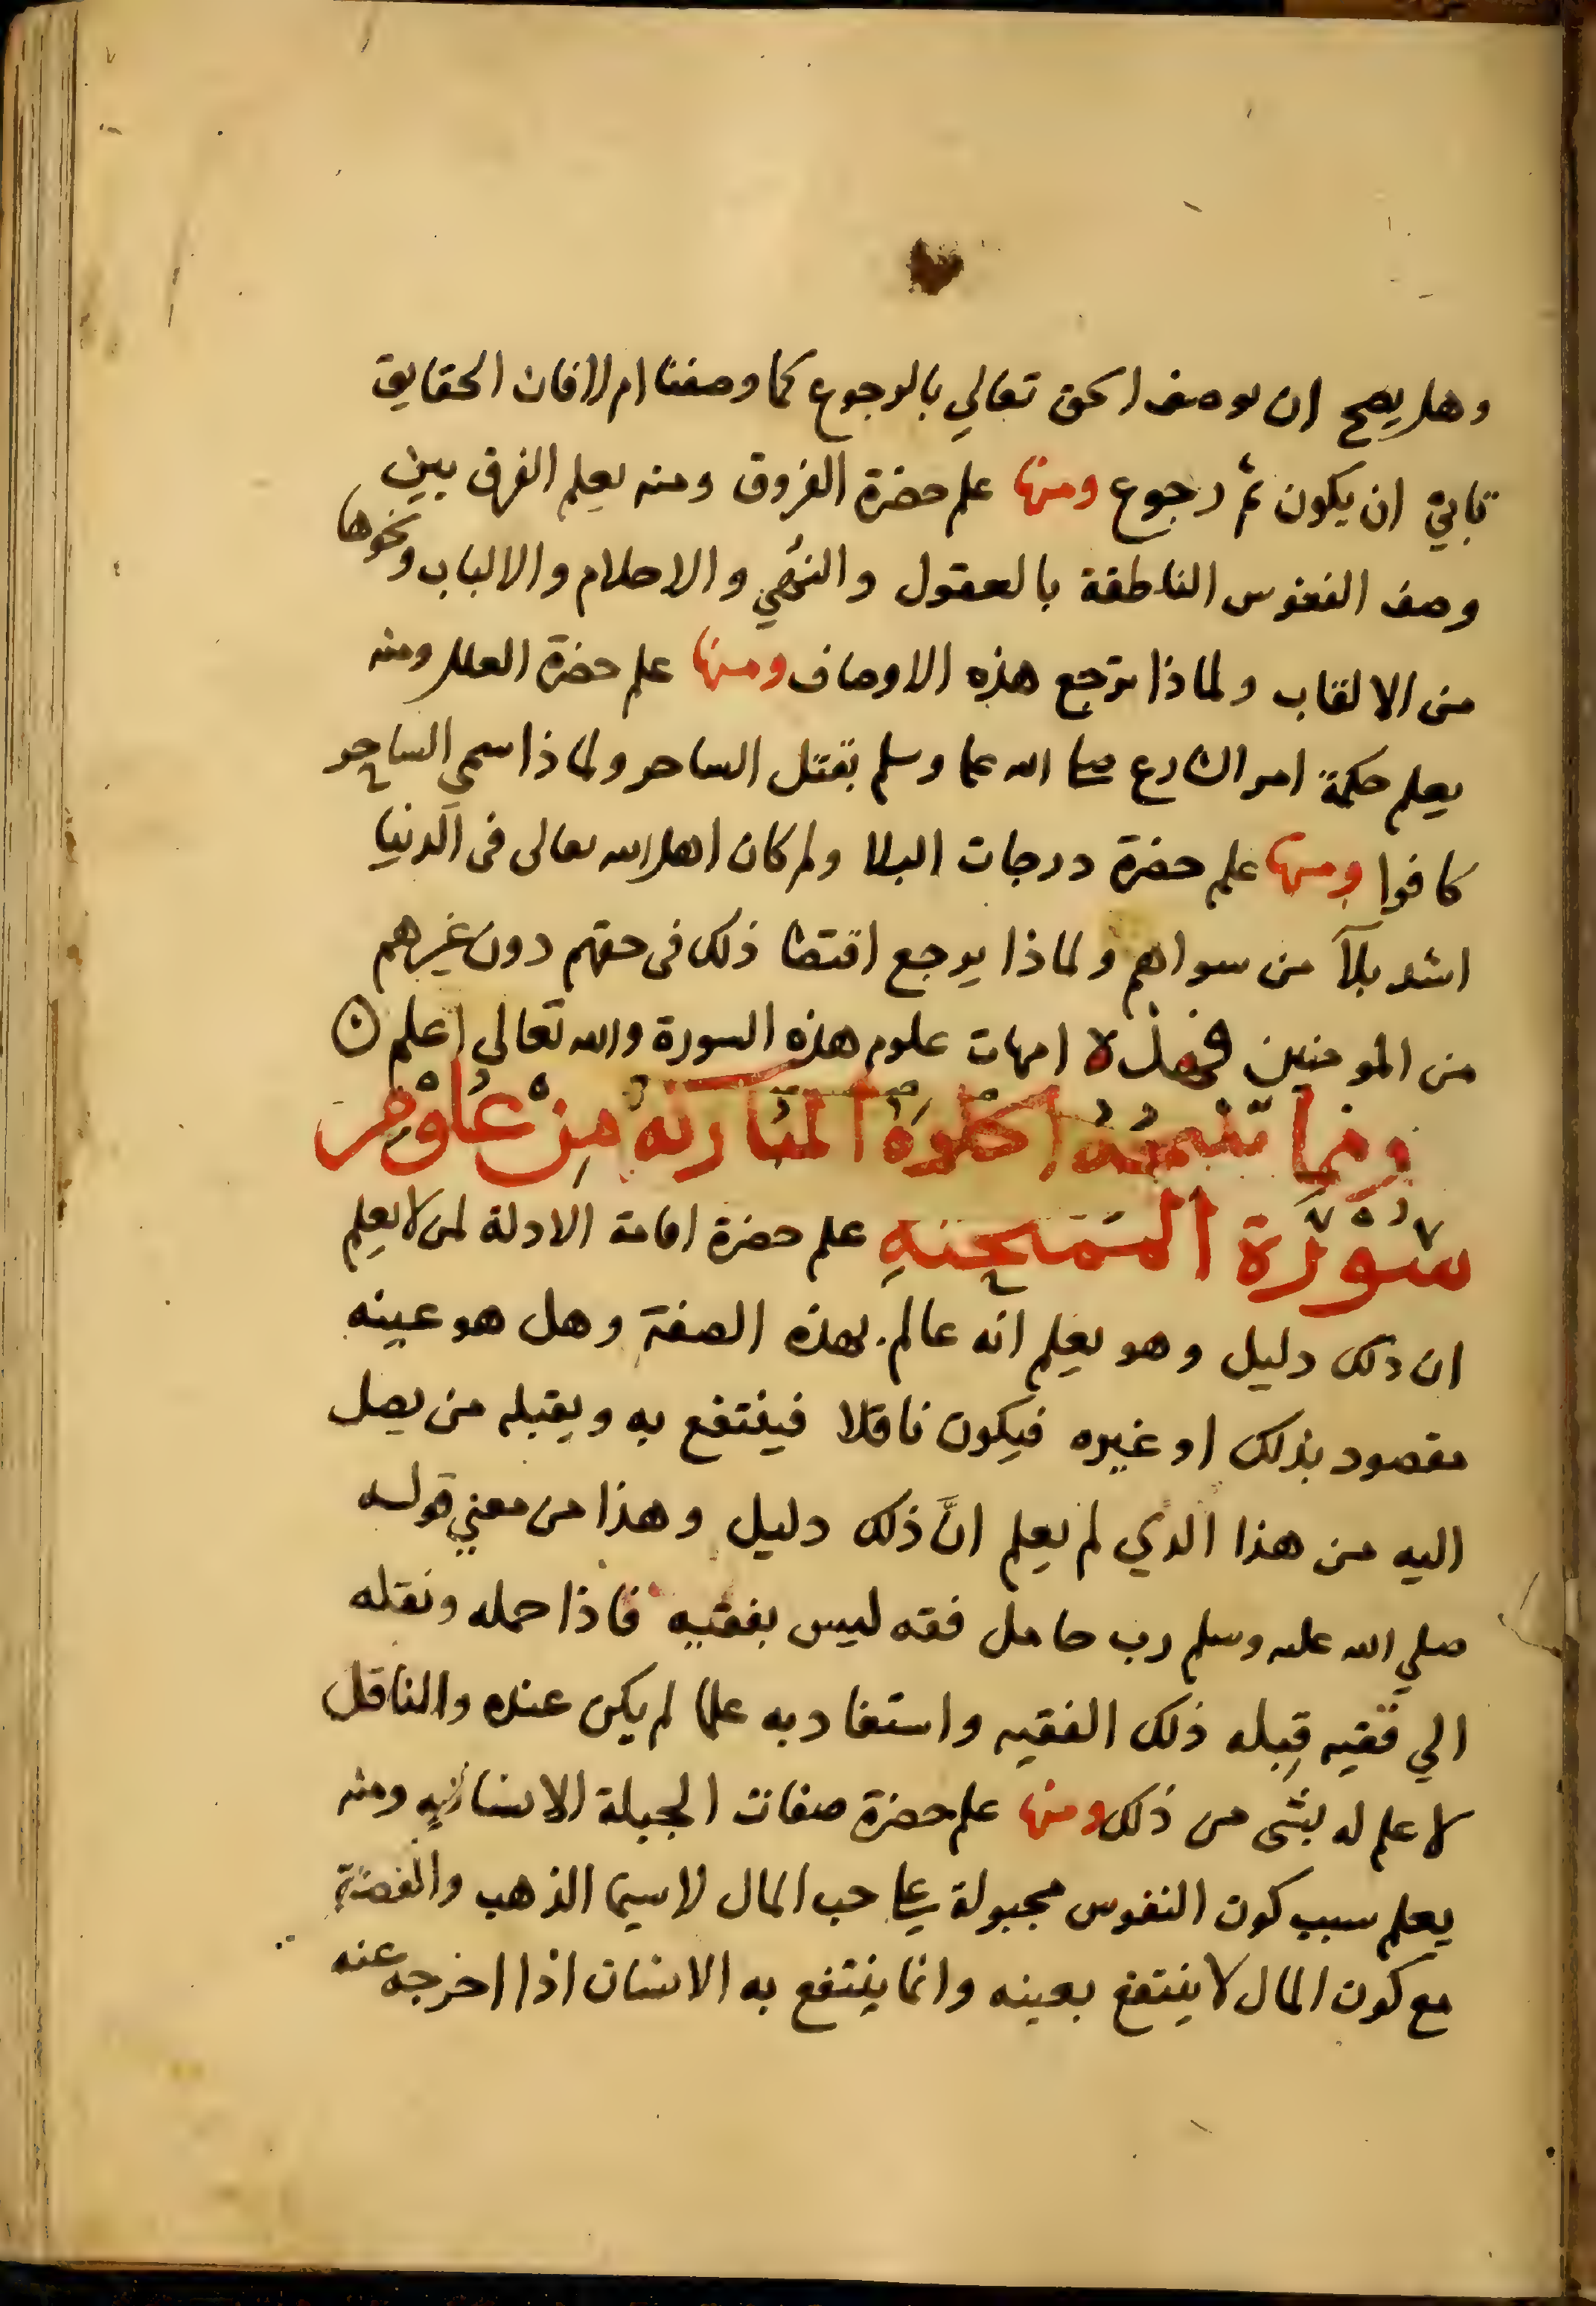 وهل يصح ان يوصف الحق تعالي بالرجوع كما وصفنا ام لا فان الحقايق
تابي ان يكون ثم رجوع ومنها علم حضرة الفروق ومنه يعلم الفرق بين
وصف النفوس الناطقة بالعقول والنهي والاحلام والالباب ونحوها
من الالقاب ولماذا ترجع هذه الاوصاف ومنها علم حضرة العلل ومنه
يعلم حكمة امر الشارع صلى الله عليه وسلم بقتل الساحر ولماذا سمي الساحر
كافرا ومنها علم حضرة درجات البلا ولم كان اهل الله تعالى فى الدنيا
اشد بلآ من سواهم ولماذا يرجع اقتضا ذلك فى حقهم دون غيرهم
من المومنين فهذه امهات علوم هذه السورة والله تعالي اعلم
ومما تنتجه الخلوة المباركة من علوم
سورة الممتحنه علم حضرة اقامة الادلة لمن لا يعلم
ان ذلك دليل وهو يعلم انه عالم بهذه الصفة وهل هو عينه
مقصود بذلك او غيره فيكون ناقلا فينتفع به ويقبله من يصل
اليه من هذا الذي لم يعلم انَّ ذلك دليل وهذا من معني قوله
صلي الله عليه وسلم رب حامل فقه ليس بفقيه فاذا حمله ونقله
الي فقيه قبله ذلك الفقيه واستفاد به علما لم يكن عنده والناقل
لا علم له بشى من ذلك ومنها علم حضرة صفات الجبلة الانسانيه ومنه
يعلم سبب كون النفوس مجبولة على حب المال لاسيما الذهب والفضة
مع كون المال لا ينتفع بعينه وانما ينتفع به الانسان اذا اخرجه عنه